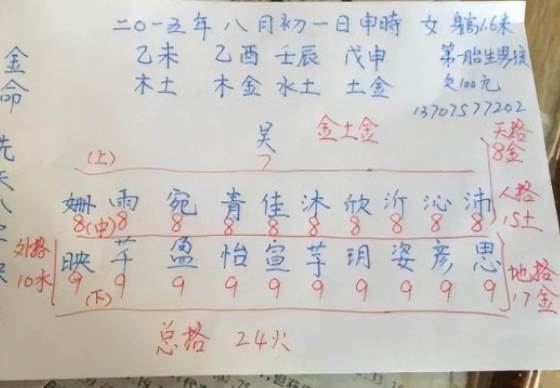 二〇一五年八月初一日申時 女 身高1.6米
乙未 乙酉 壬辰 戊申 第一胎生男孩
木土 木金 水土 土金 欠100元
13707577202
金命
先天八字缺
吴 金土金
7
(上)
天格
8金
姗 雨 宛 青 佳 沐 欣 沂 沁 沛
8 (中) 8 8 8 8 8 8 8 8 8
人格
15土
外格
10水
映 芊 盈 怡 宣 芋 玥 姿 彦 思
9 9 9 9 9 9 9 9 9 9
(下)
地格
17金
总格 24火